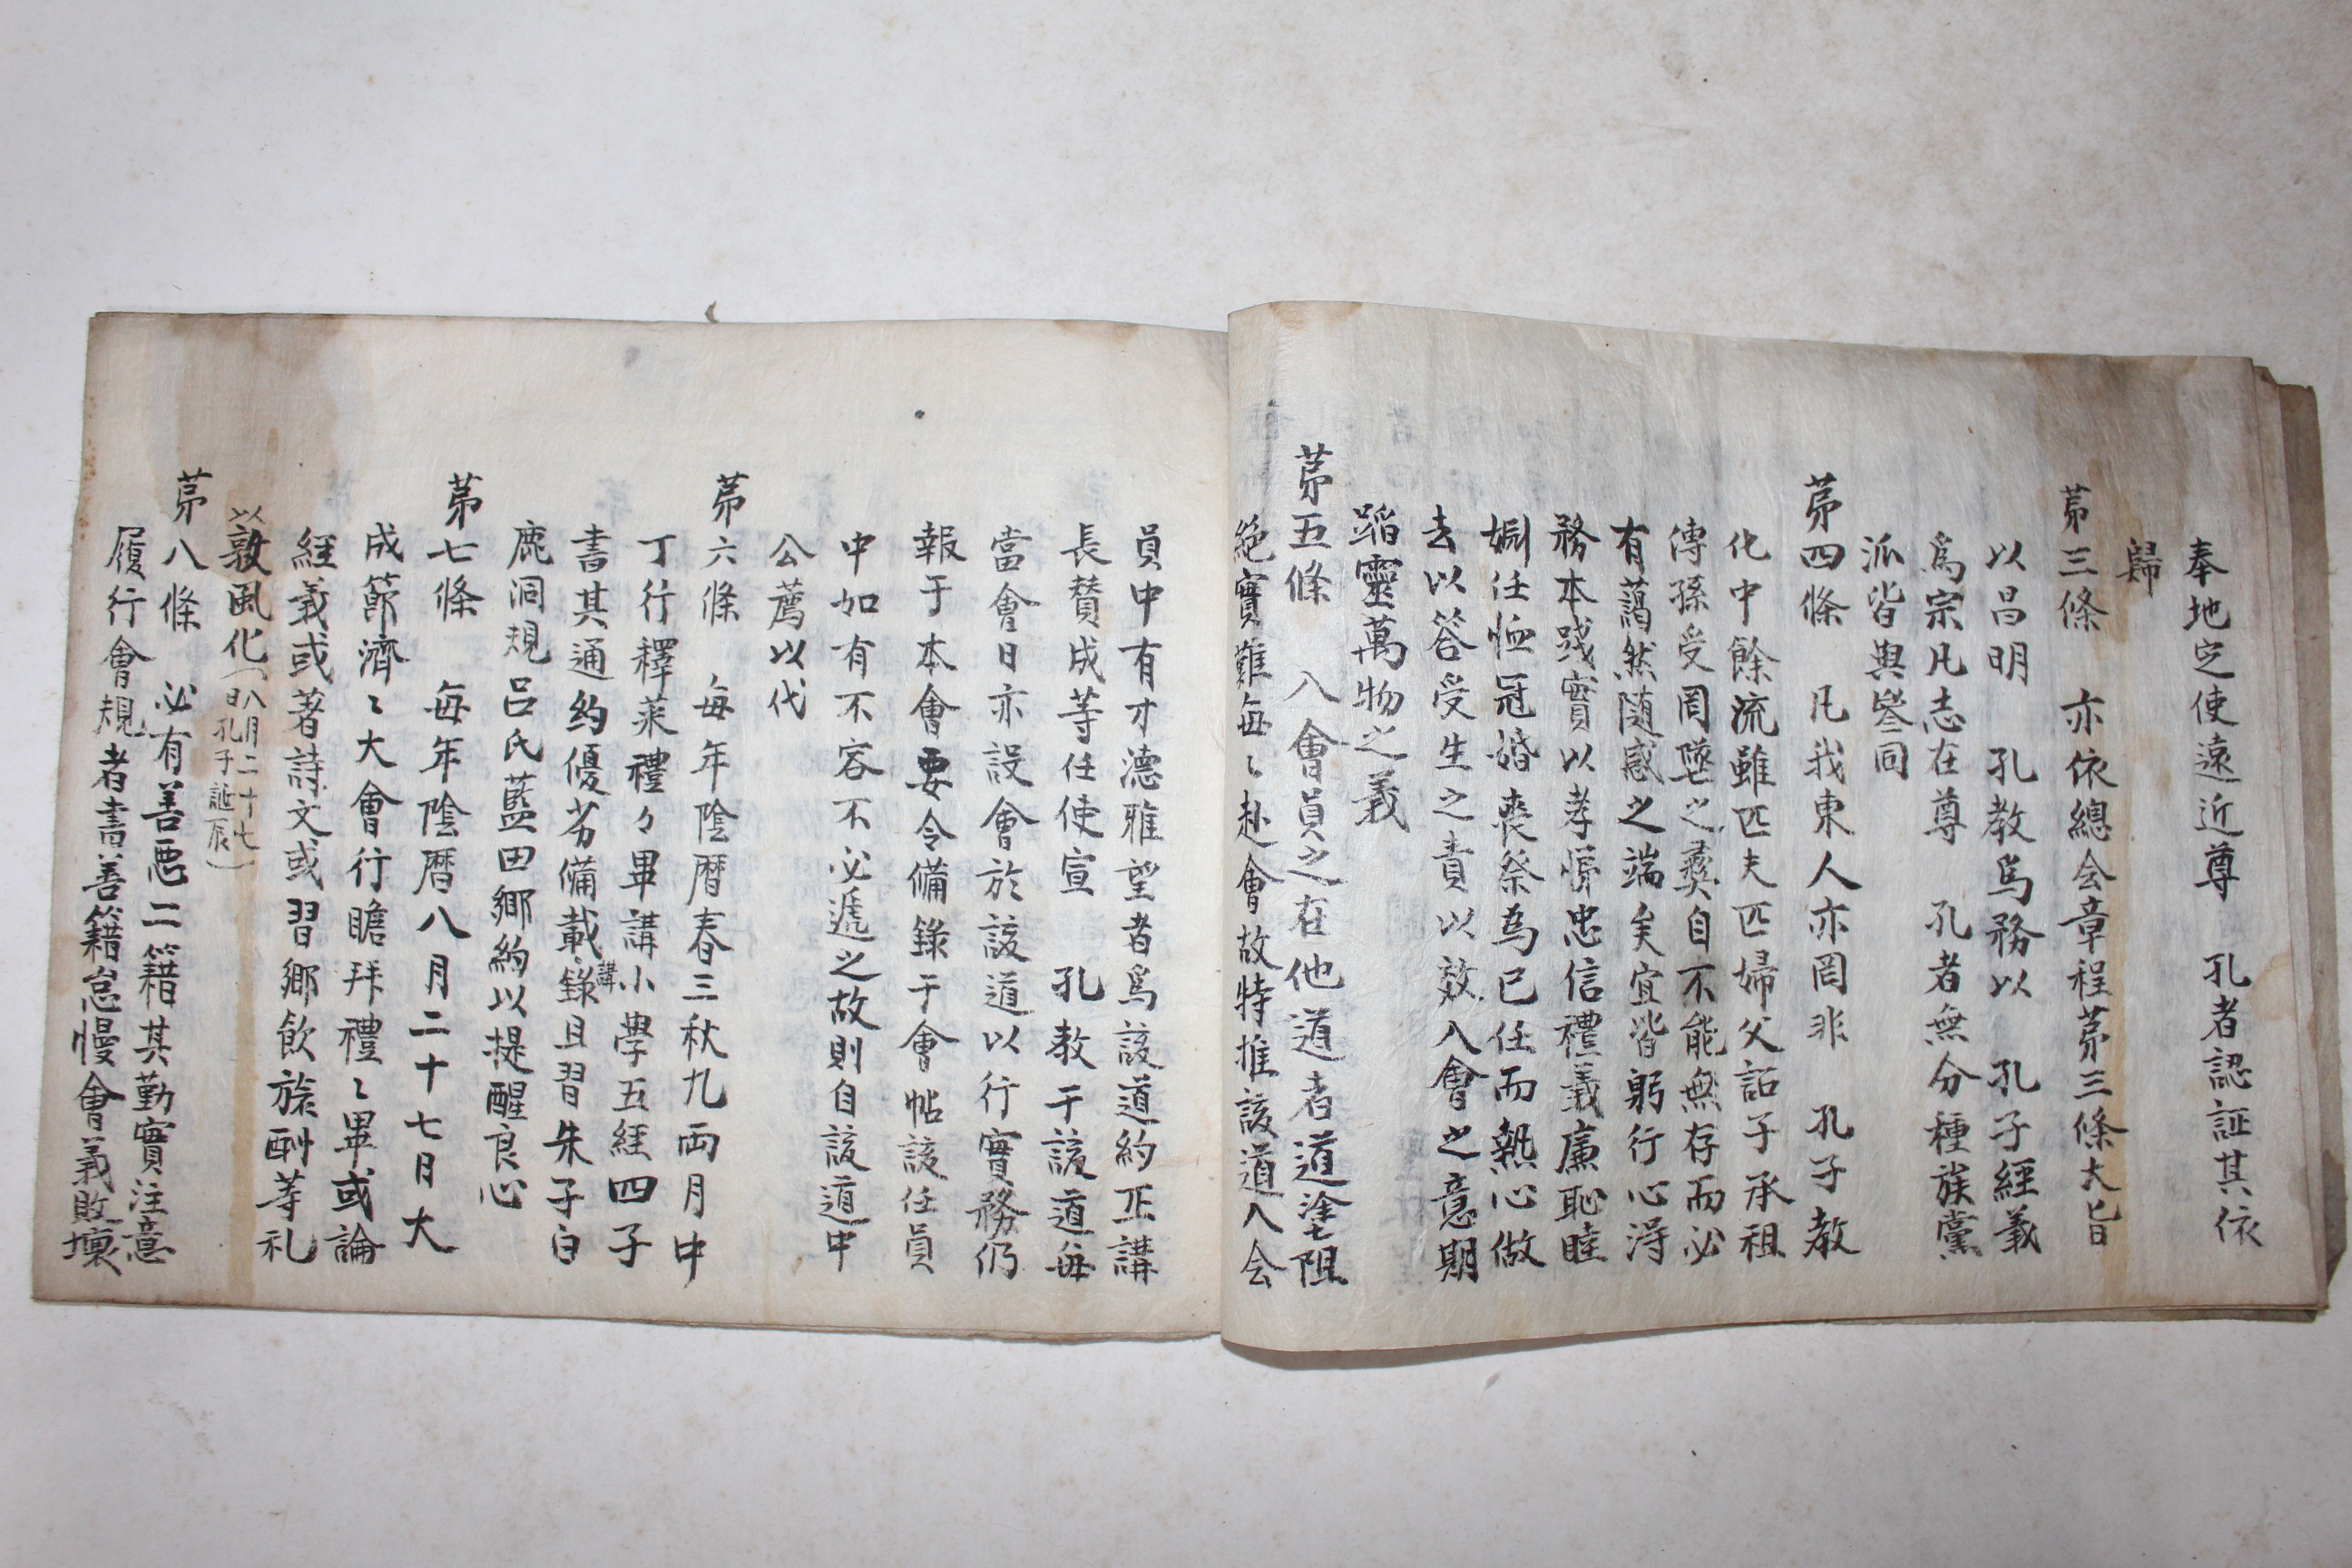 奉地定使遠近尊 孔者認証其依
歸
苐三條 亦依總会章程苐三條大旨
以昌明 孔教爲務以 孔子經義
爲宗凡志在尊 孔者無分種族黨
派皆與叅同
苐四條 凡我東人亦罔非 孔子教
化中餘流雖匹夫匹婦父詔子承祖
傳孫受罔墜之彜自不能無存而必
有藹然随感之端矣宜皆躬行心淂
務本踐實以孝悌忠信禮義廉恥睦
婣任恤冠婚喪祭為己任而熱心做
去以答受生之責以效入會之意期
蹈靈萬物之義
苐五條 入會員之在他道者道塗阻
絶實難每〻赴會故特推該道入会
員中有才德雅望者爲該道約正講
長賛成等任使宣 孔教于該道每
當會日亦設會於該道以行實務仍
報于本會要令備錄于會帖該任員
中如有不容不必遞之故則自該道中
公薦以代
苐六條 每年陰曆春三秋九両月中
丁行釋菜禮々畢講小學五経四子
書其通約優劣備載講錄且習朱子白
鹿洞規呂氏藍田鄉約以提醒良心
苐七條 每年陰曆八月二十七月大
成節濟〻大會行瞻拜禮〻畢或論
経義或著詩文或習鄉飲旅酬等礼
以敦風化(八月二十七
日孔子誕辰)
苐八條 必有善悪二籍其勤實注意
履行會規者書善籍怠慢會義敗壞